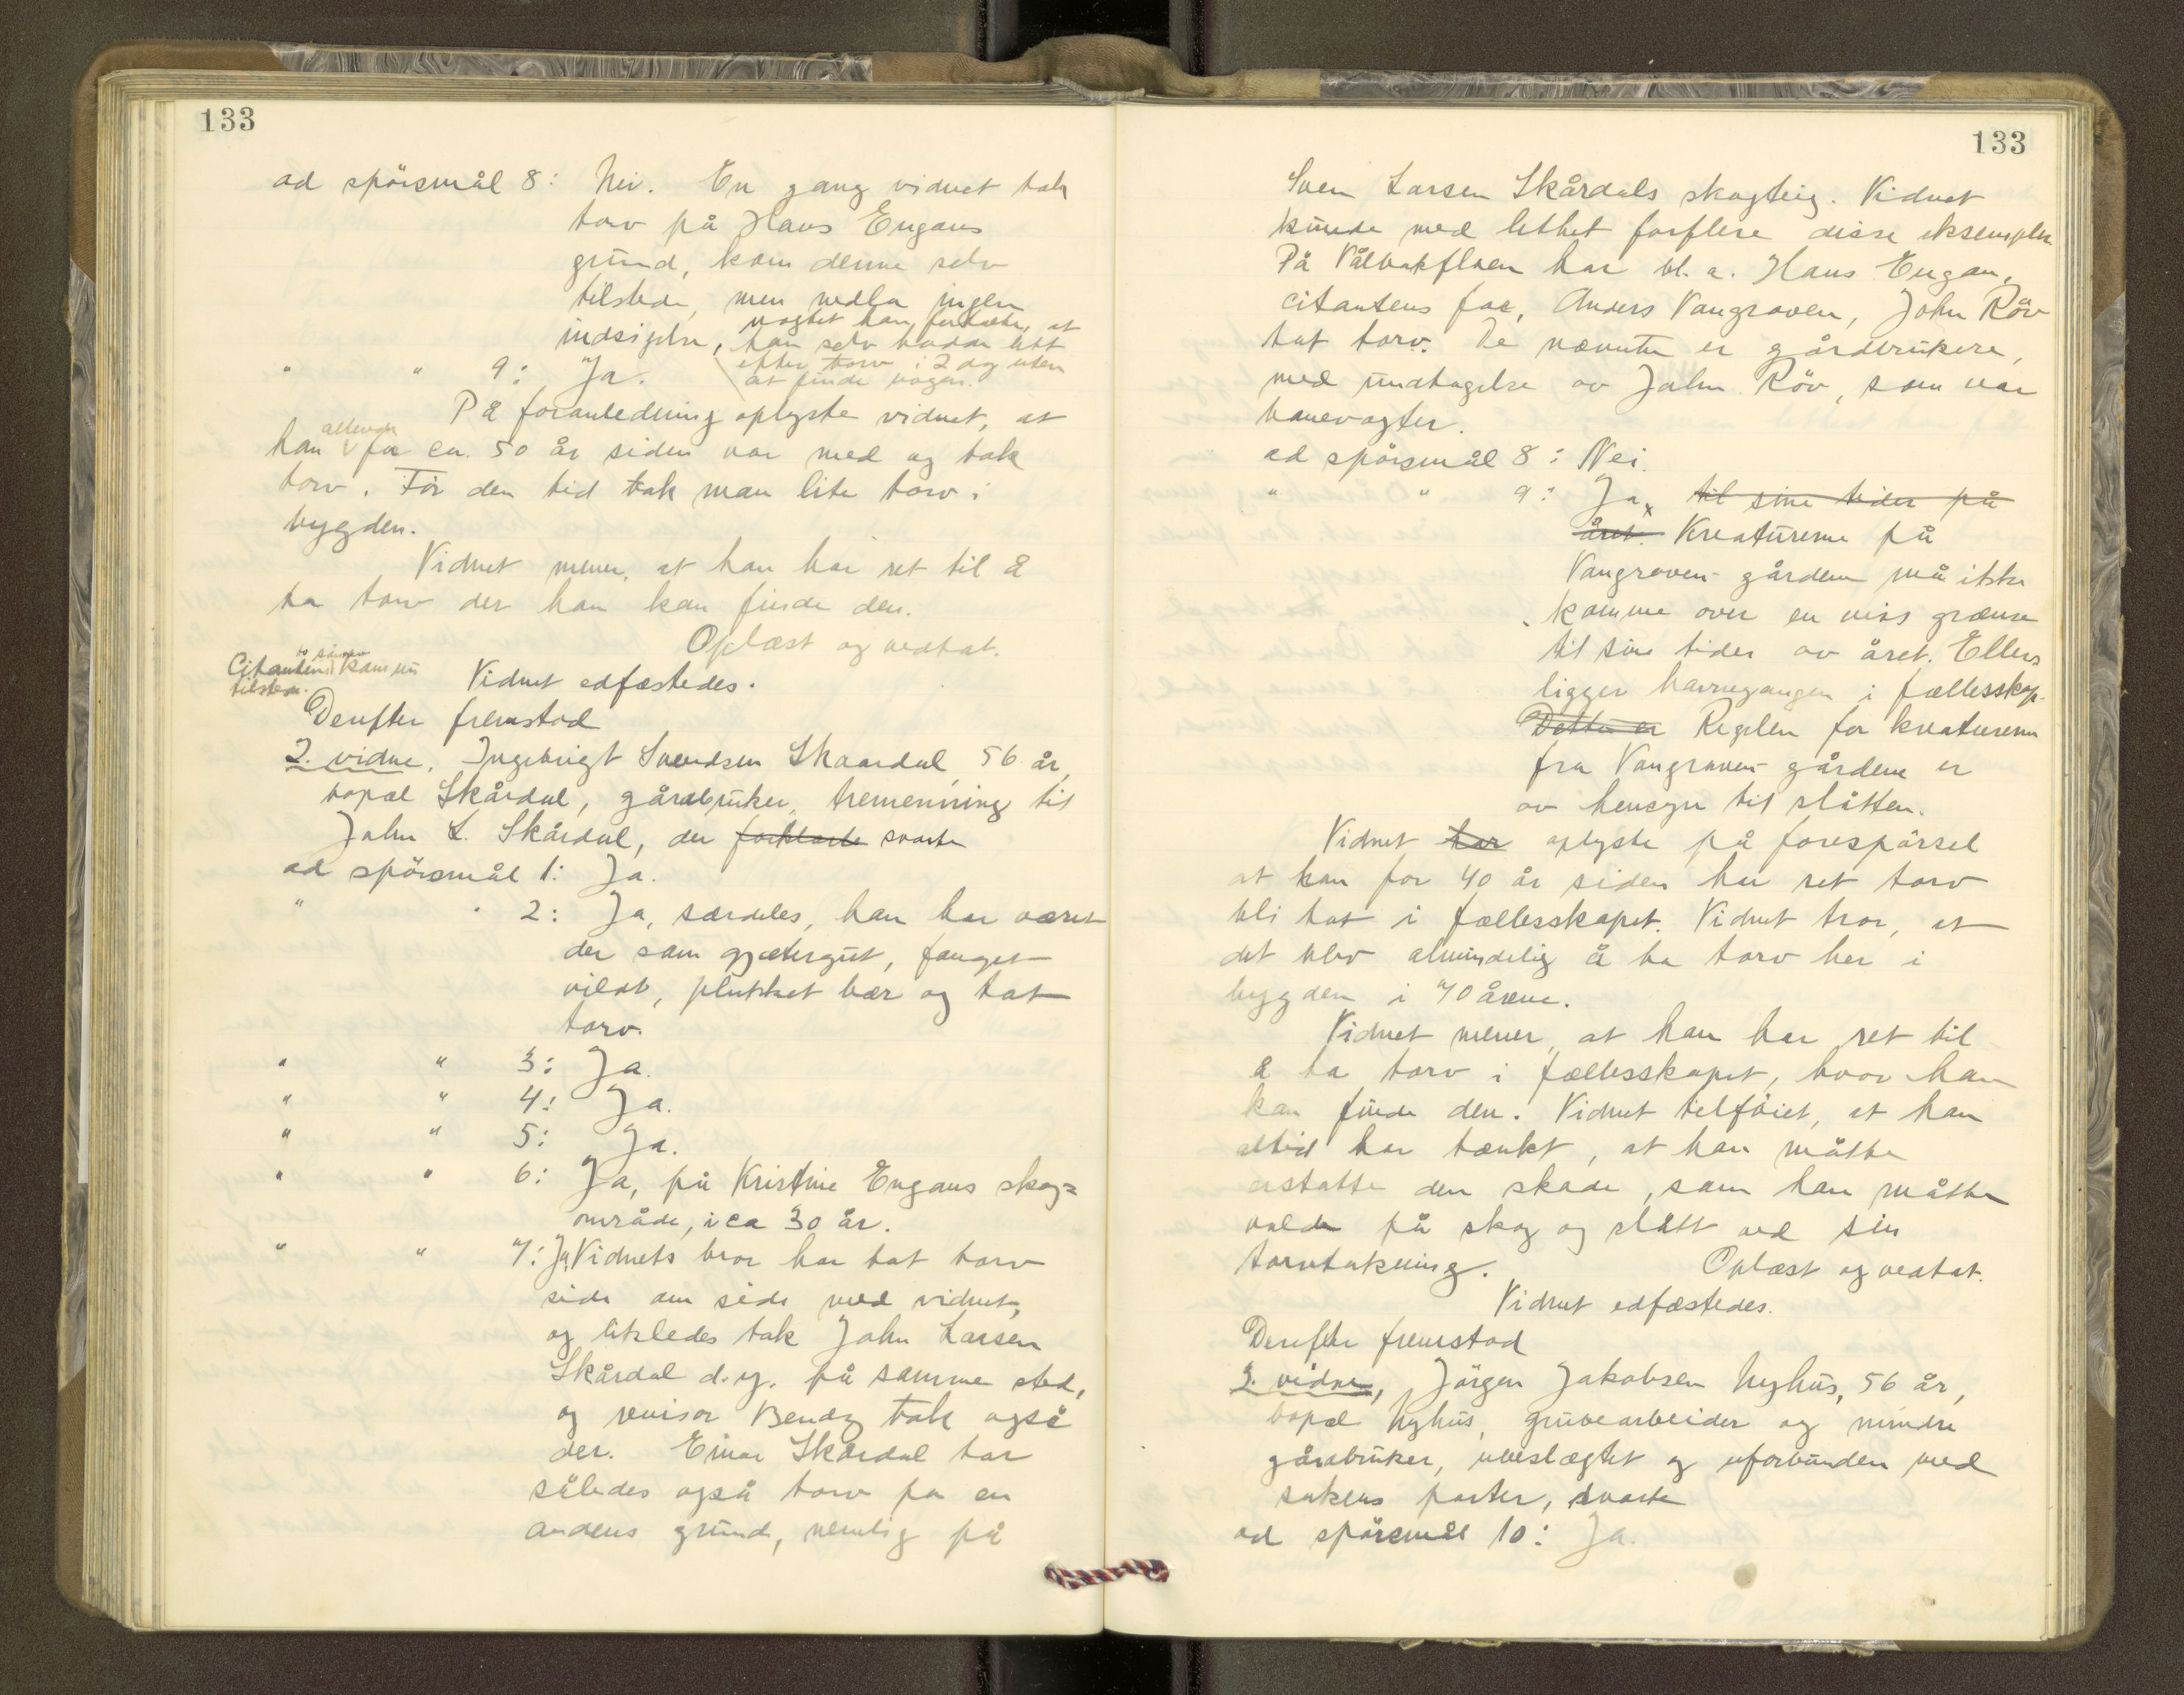 133
ad spörsmål 8: Nei. En gang vidnet tok
torv på Hans Engans
grund, kom denne selv
tilstede, men nedla ingen
indsigelse, uagtet han fortalte, at
han selv hadde lett
efter torv i 2 dag uten
at finde nogen.
" " 9: Ja.
På foranledning oplyste vidnet, at
han allerede for ca. 50 år siden var med og tok
torv. Før den tid tok man lite torv i
bygden.
Vidnet mener, at han har ret til å
ta torv der han kan finde den.
Oplæst og vedtat.
Citantens to sönner kom nu
tilstede.
Vidnet edfæstedes.
Derefter fremstod
2. vidne, Ingebrigt Svendsen Skaardal, 56 år,
bopæl Skårdal, gårdbruker, tremenning til
John L. Skårdal, der forklarte svarte
ad spörsmål 1: Ja.
" " 2: Ja, særdeles, han har været
der som gjætergut, fanget
vildt, plukket bær og tat
torv.
" " 3: Ja.
" " 4: Ja.
" " 5: Ja.
" " 6: Ja, på Kristine Engans skog=
område, i ca 30 år.
" " 7: Ja, Vidnets bror har tat torv
side om side med vidnet,
og likeledes tok John Larsen
Skårdal d.y. på samme sted,
og revisor Bendz tok også
der. Einar Skårdal har
således også torv på en
andens grund, nemlig på
133
Sven Larsen Skårdals skogteig. Vidnet
kunde med lethet forflere disse eksempler.
På Vålbakfloen har bl. a. Hans Engan,
citantens far, Anders Vangraven, John Röv
tat torv. De nævnte er gårdbrukere,
med undtagelse av John Röv, som var
banevogter.
ad spörsmål 8: Nei.
" " 9: Ja, til sine tider på
året. Kreaturerne på
Vangraven-gårdene må ikke
komme over en viss grænse
til sine tider av året. Ellers
ligger havnegangen i fællesskap.
Dette er Regelen for kreaturerne
fra Vangraven-gårdene er
av hensyn til slåtten.
Vidnet har oplyste på forespörsel
at han for 40 år siden har set torv
bli tat i fællesskapet. Vidnet tror, at
det blev almindelig å ta torv her i
bygden i 70 årene.
Vidnet mener, at han har ret til
å ta torv i fællesskapet, hvor han
kan finde den. Vidnet tilföiet, at han
altid har tænkt, at han måtte
erstatte den skade, som han måtte
volde på skog og slått ved sin
torvtakning. Oplæst og vedtat.
Vidnet edfæstedes.
Derefter fremstod
3. vidne, Jörgen Jakobsen Nyhus, 56 år,
bopæl Nyhus, grubearbeider og mindre
gårdbruker, ubeslægtet og uforbunden med
sakens parter, svarte
ad spörsmål 10: Ja.